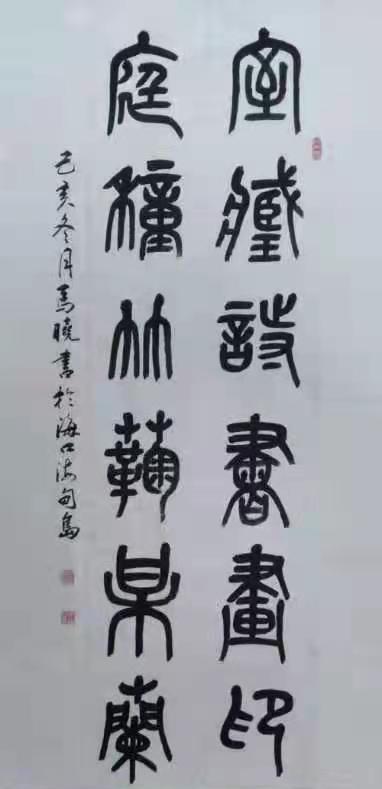 室藏詩書畫印
庭種竹鞠某蘭
己亥冬月馬曉書於海口海甸島